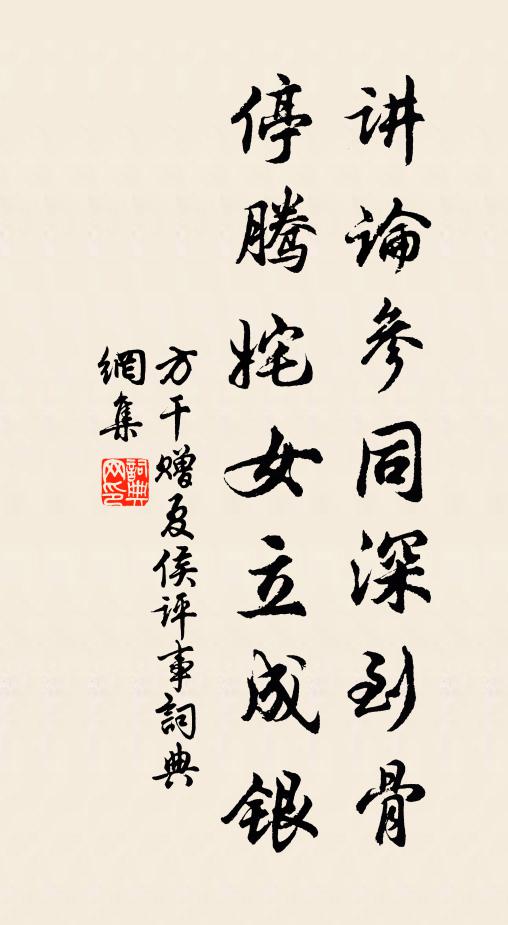 讲论参同深到骨
停腾姹女立成银
方干赠夏侯评事词典
網集
詞典网印